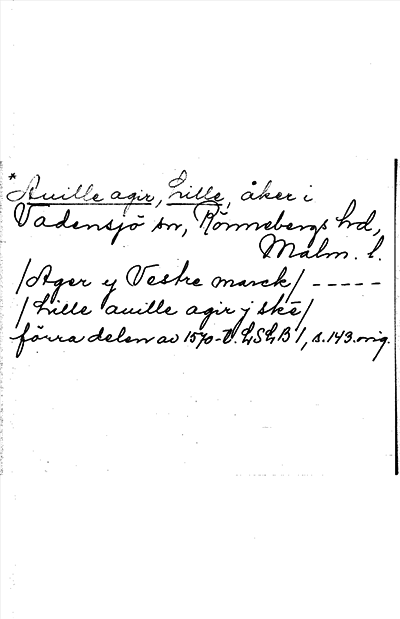 *Auille agir, Lille, åker i
Vadensjö sn, Rönnebergs hd,
Malm. l.
/Ager y Vestre marck/ -----
/Lille auille agir j ske/
förra delen av 1570-t. LSLB 1, s. 143. orig.